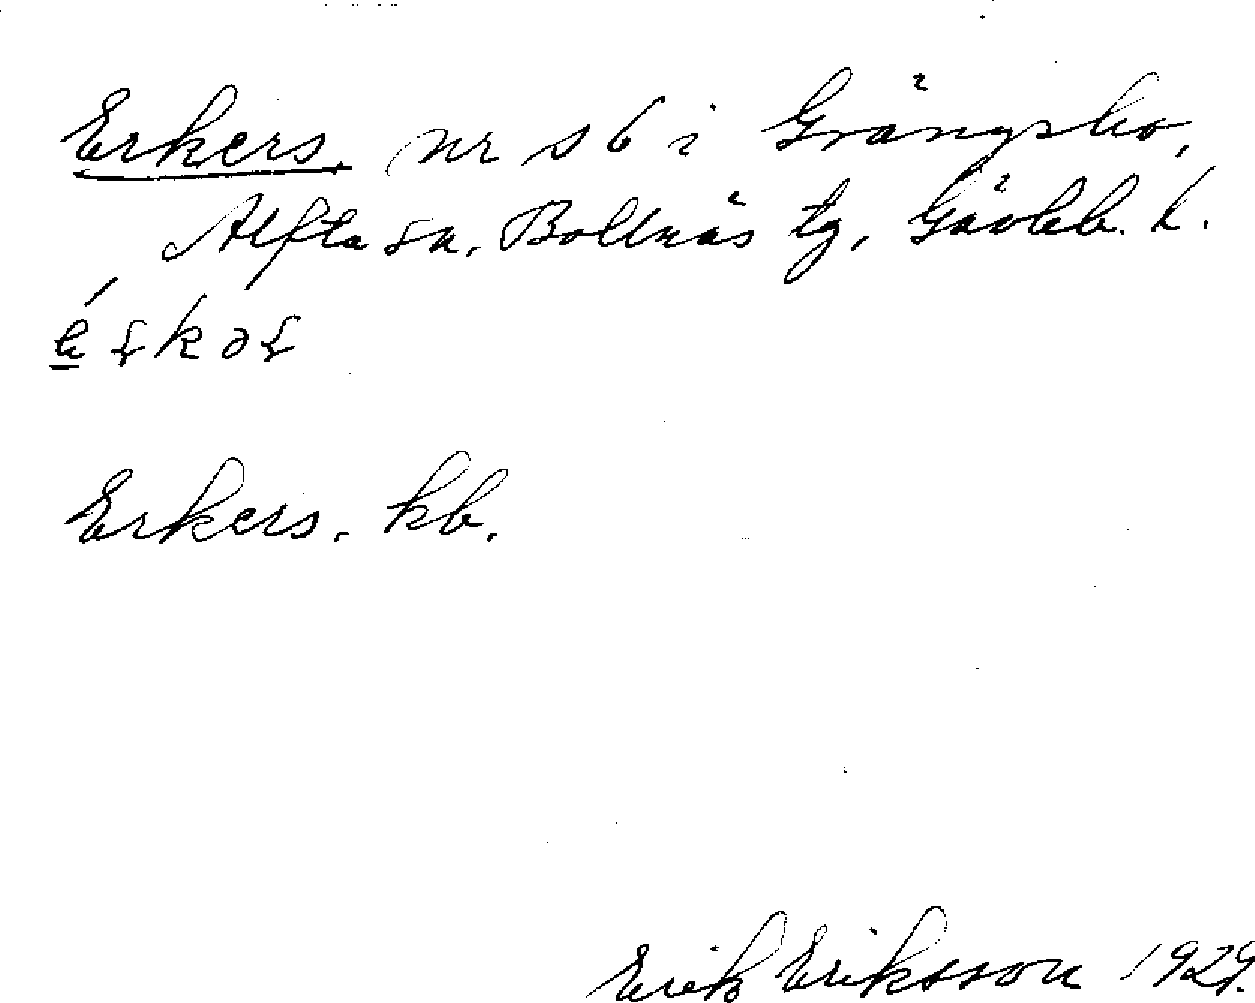 Erkers. nr 6 i Grängsbo,
Alfta sn. Bollnäs tg, Gävleb. l.
Erkers. kb.
Erik Eriksson 1929.